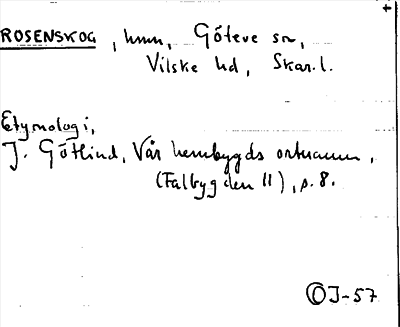 ROSENSKOG, hmn, Göteve sn,
Vilske hd, Skar.l.
Etymologi,
J. Götlind, Vår hembygds ortnamn,
(Falbygden II), s. 8.
OJ-57